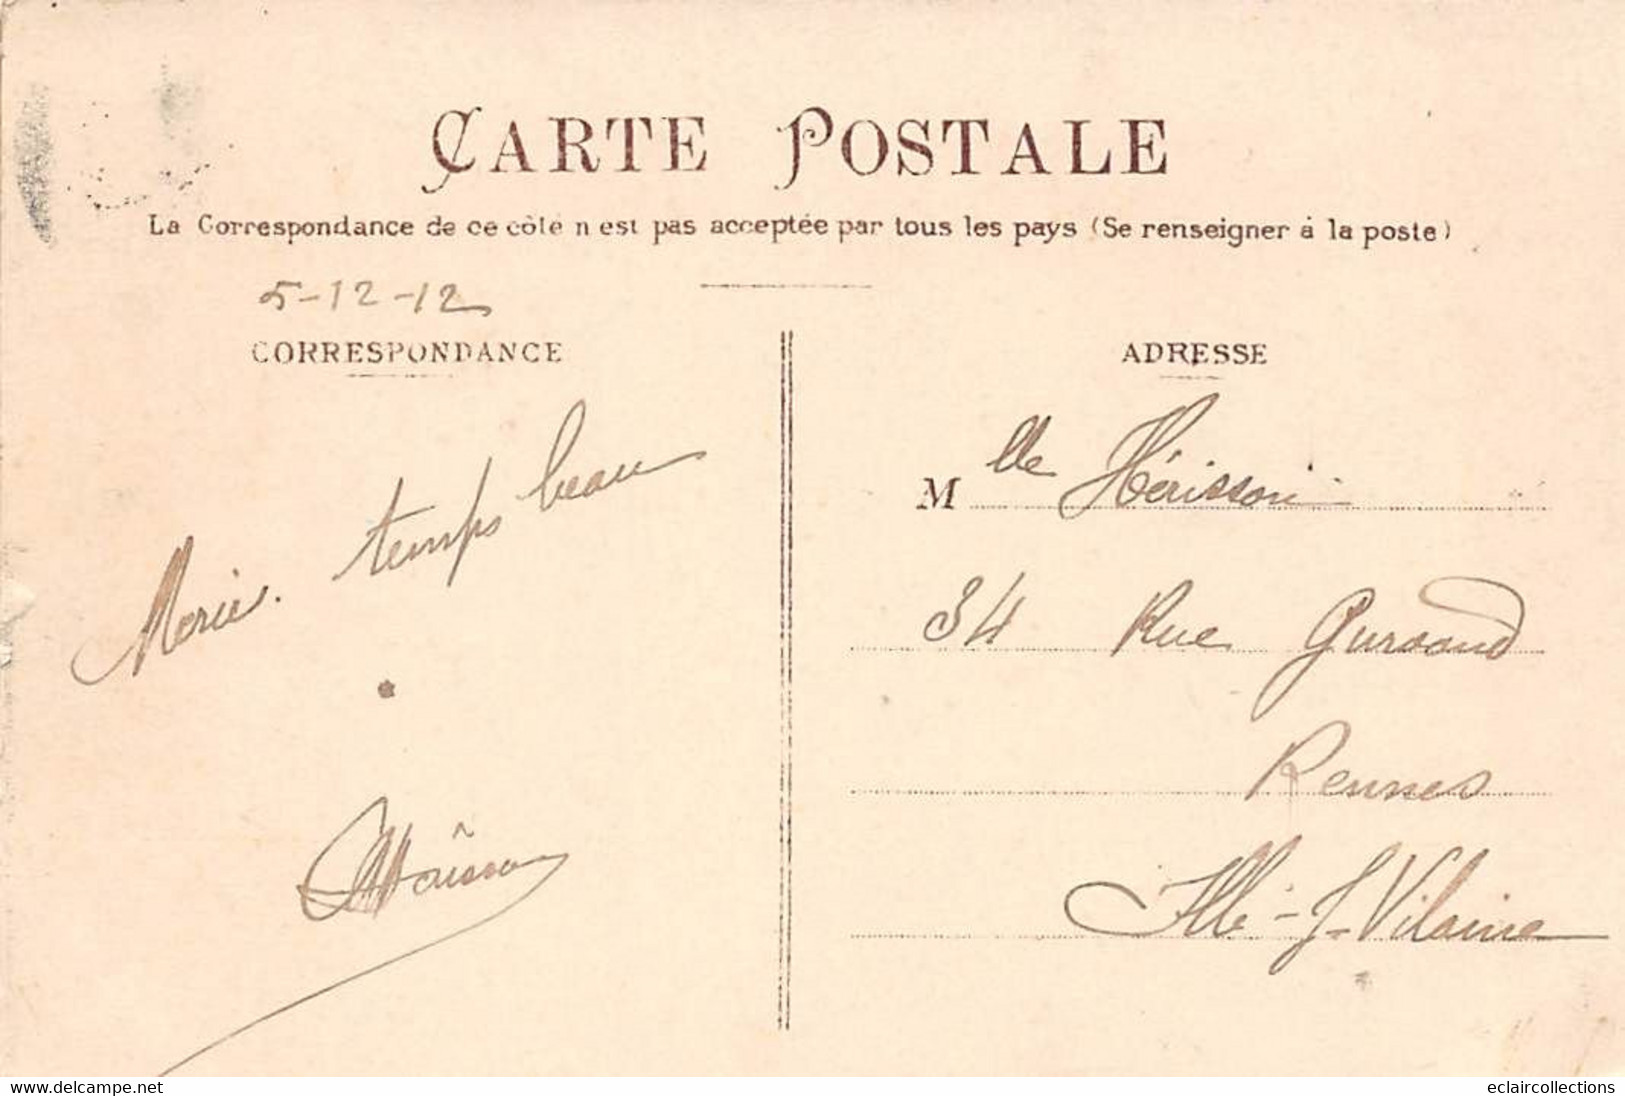 CARTE POSTALE
La Correspondance de ce côté n'est pas acceptée par tous les pays (Se renseigner à la poste)
5-12-12
CORRESPONDANCE
temps beau
ADRESSE
Mlle Hérisson
34 Rue
Rennes
Ille-&-Vilaine
www.delcampe.net
eclaircollections